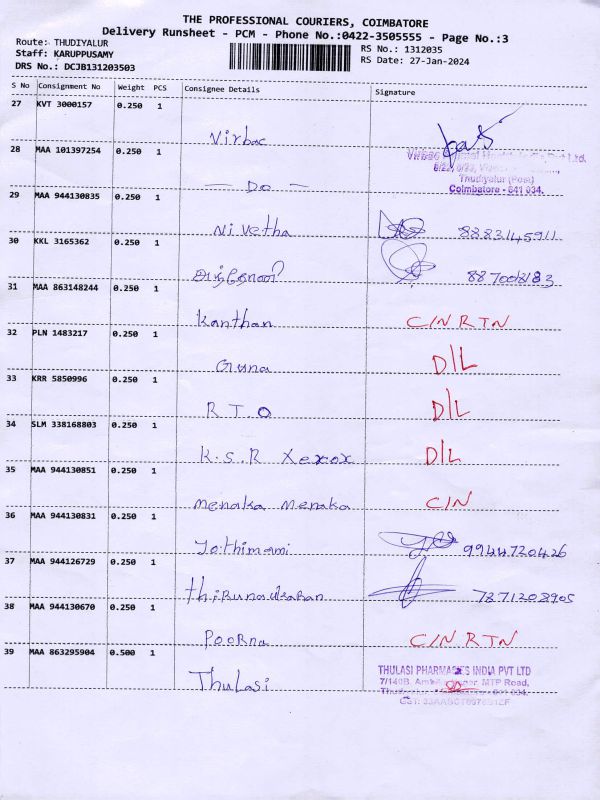 THE PROFESSIONAL COURIERS, COIMBATORE
Delivery Runsheet - PCM - Phone No.:0422-3505555 - Page No.:3
Route: THUDIYALUR
RS No.: 1312035
Staff: KARUPPUSAMY
RS Date: 27-Jan-2024
DRS No.: DCJB131203503
S No Consignment No Weight PCS Consignee Details Signature
27 KVT 3000157 0.250 1
Virbac
28 MAA 101397254 0.250 1
Thudiyalur (Post)
Coimbatore - 641 034.
— Do —
29 MAA 944130835 0.250 1
Nivetha 8883145911
30 KKL 3165362 0.250 1
அந்தோணி
31 MAA 863148244 0.250 1
Kanthan C/N RTN
32 PLN 1483217 0.250 1
Guna D/L
33 KRR 5850996 0.250 1
R T O D/L
34 SLM 338168803 0.250 1
K.S.R Xerox D/L
35 MAA 944130851 0.250 1
Menaka Menaka C/N
36 MAA 944130831 0.250 1
Jothimani 9944720426
37 MAA 944126729 0.250 1
7871208905
38 MAA 944130670 0.250 1
Poorna C/N RTN
39 MAA 863295904 0.500 1
Thulasi
THULASI PHARMACIES INDIA PVT LTD
7/140B, MTP Road,